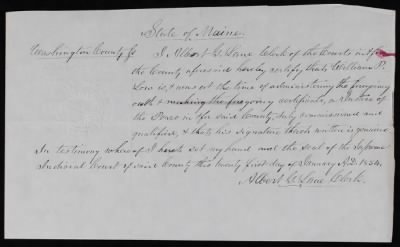 State of Maine.
Washington County ss I, Albert G. Lane Clerk of the Courts in & for
the County aforesaid hereby certify that William P.
Low is, & was at the time of administering the foregoing
oath & making the foregoing certificate, a Justice of
the Peace in & for said County, duly commissioned and
qualified, & that his signature thereto written is genuine
In testimony whereof I hereto set my hand and the seal of the Supreme
Judicial Court of said County this twenty first day of January A.D. 1854.
Albert G. Lane Clerk.